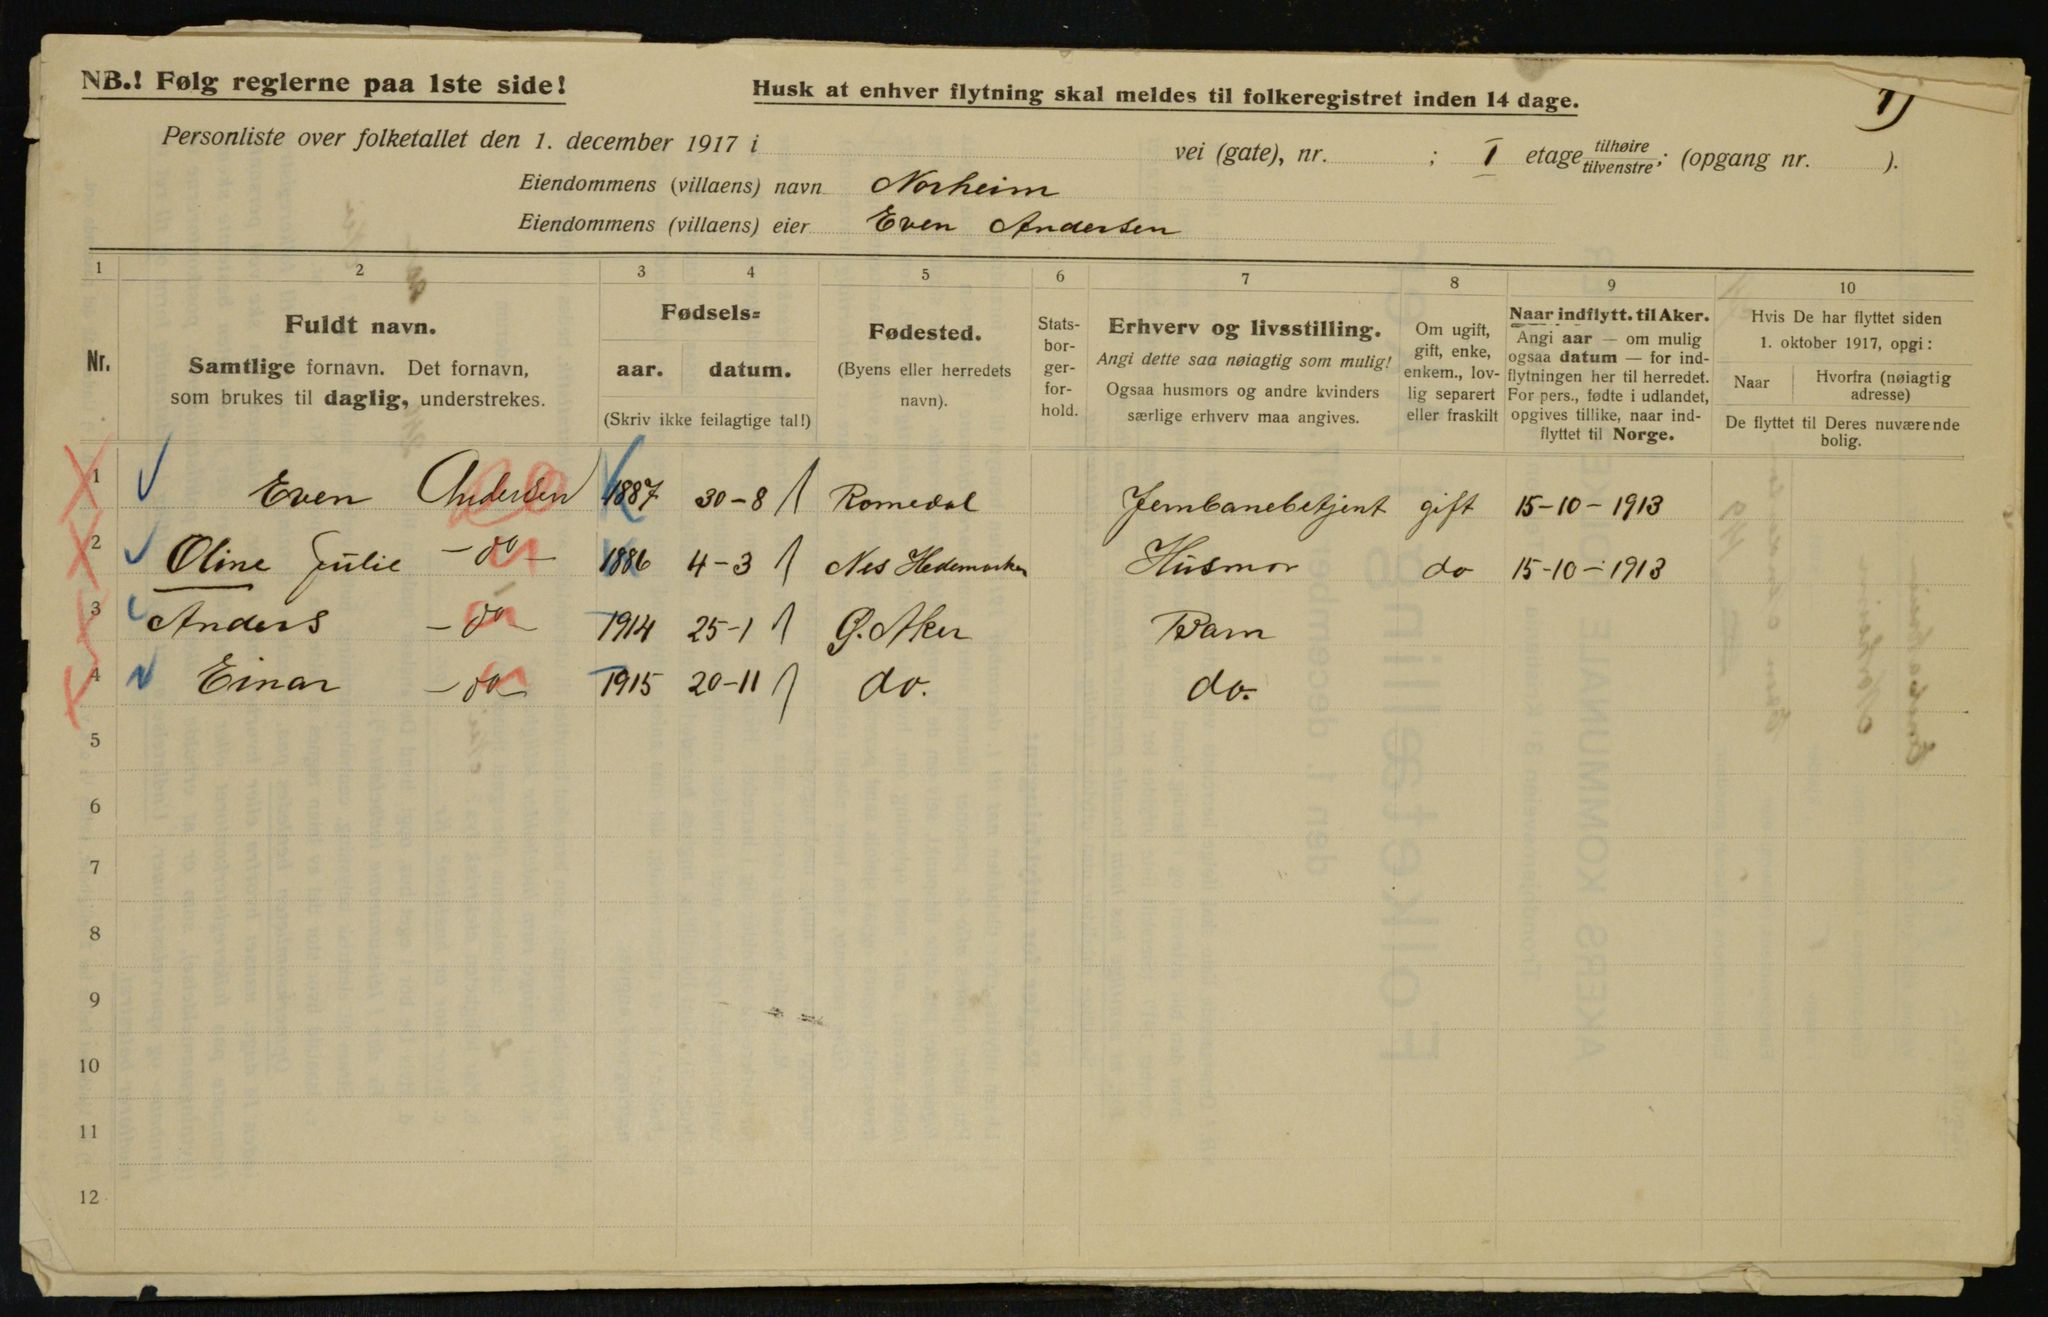 NB.! Følg reglerne paa 1ste side!
Husk at enhver flytning skal meldes til folkeregistret inden 14 dage.
Personliste over folketallet den 1. december 1917 i vei (gate), nr. ; I etage tilhøire tilvenstre; (opgang nr. ).
Eiendommens (villaens) navn Norheim
Eiendommens (villaens) eier Even Andersen
1 2 3 4 5 6 7 8 9 10
Nr.
Fuldt navn.
Samtlige fornavn. Det fornavn,
som brukes til daglig, understrekes.
Fødsels=
aar. datum.
(Skriv ikke feilagtige tal!)
Fødested.
(Byens eller herredets
navn).
Stats-
bor-
ger-
for-
hold.
Erhverv og livsstilling.
Angi dette saa nøiagtig som mulig!
Ogsaa husmors og andre kvinders
særlige erhverv maa angives.
Om ugift,
gift, enke,
enkem., lov-
lig separert
eller fraskilt
Naar indflytt. til Aker.
Angi aar — om mulig
ogsaa datum — for ind-
flytningen her til herredet.
For pers., fødte i udlandet,
opgives tillike, naar ind-
flyttet til Norge.
Hvis De har flyttet siden
1. oktober 1917, opgi:
Naar Hvorfra (nøiagtig
adresse)
De flyttet til Deres nuværende
bolig.
1 Even Andersen 1887 30-8 Romedal Jernbanebetjent gift 15-10-1913
2 Oline Julie - do - 1886 4-3 Nes Hedemarken Husmor do 15-10-1913
3 Anders - do - 1914 25-1 Ø. Aker Barn
4 Einar - do - 1915 20-11 do. do.
5
6
7
8
9
10
11
12